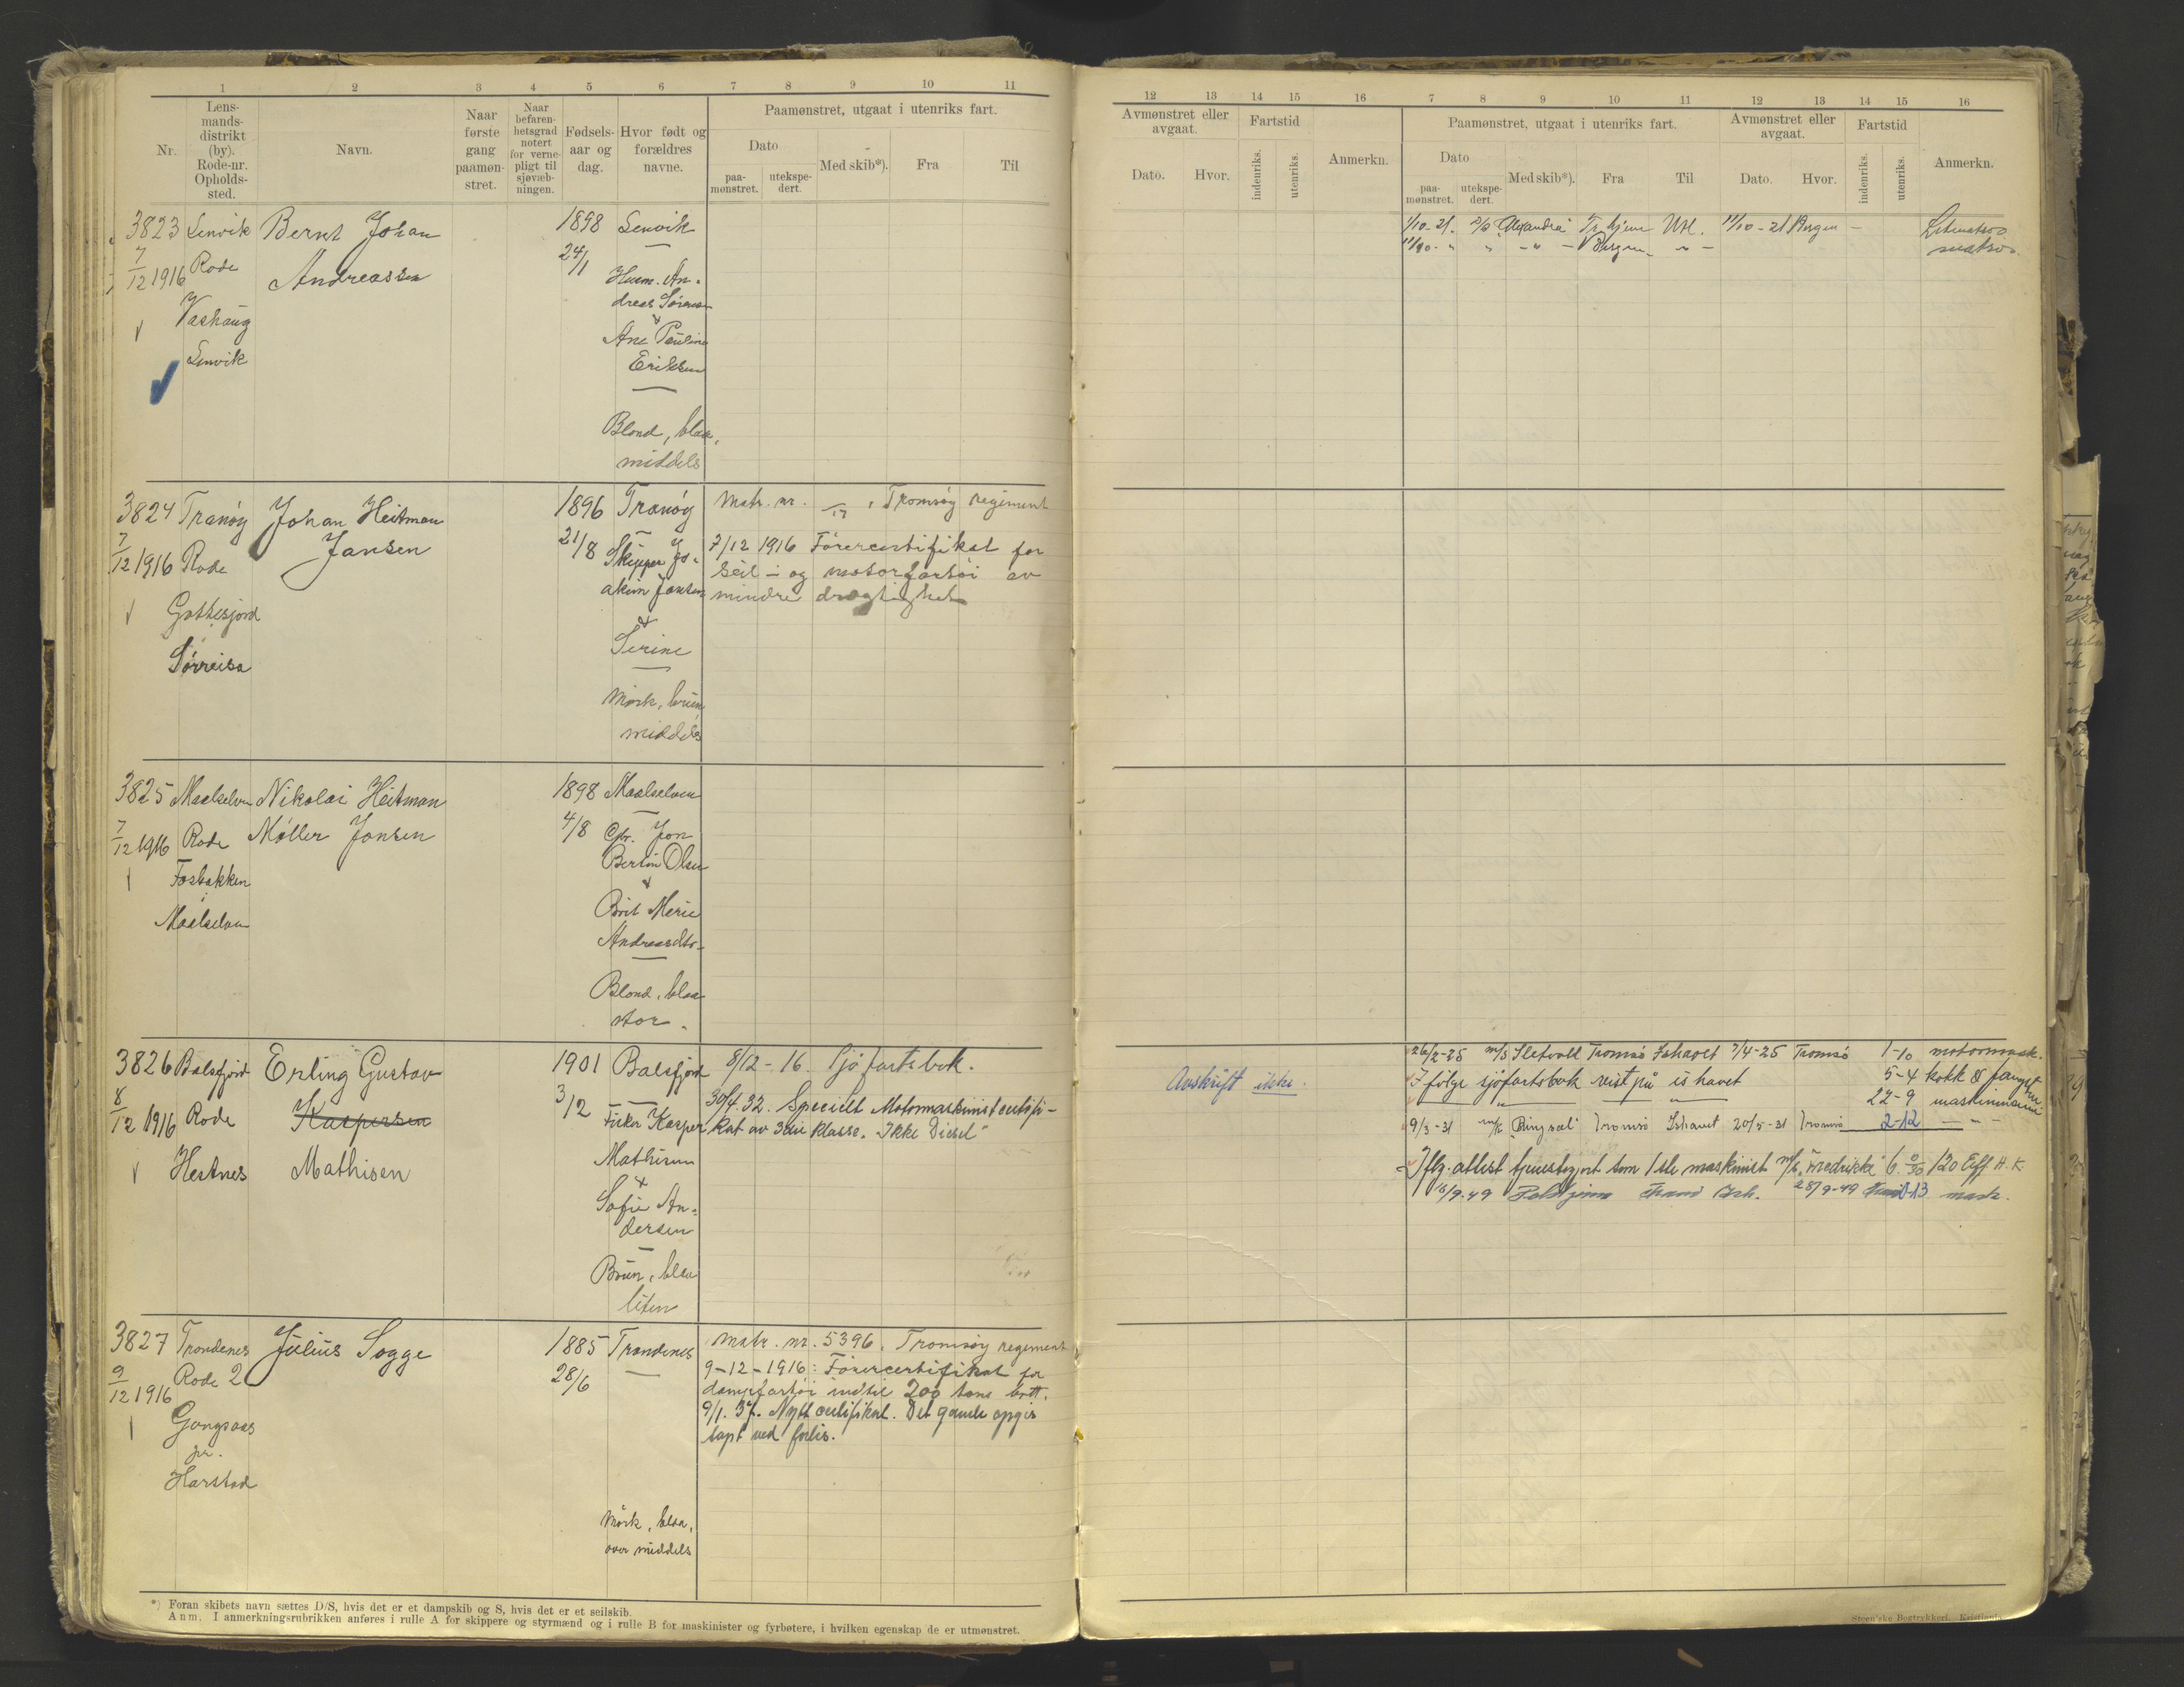 1 2 3 4 5 6 7 8 9 10 11
Nr.
Lens-
mands-
distrikt
(by).
Rode-nr.
Opholds-
sted.
Navn.
Naar
første
gang
paamøn-
stret.
Naar
befaren-
hetsgrad
notert
for verne-
pligt til
sjøvæb-
ningen.
Fødsels-
aar og
dag.
Hvor født og
forældres
navne.
Paamønstret, utgaat i utenriks fart.
Dato
paa-
mønstret.
utekspe-
dert.
Med skib*).
Fra
Til
3823 Lenvik Bernt Johan 1898 Lenvik
7/12 1916 Rode Andreassen 24/1
Vashaug
Lenvik
Husm. An-
dreas Sørensen
&
Ane Pauline
Eriksen
Blond, blaa,
middels
3824 Tranøy Johan Heitman 1896 Tranøy Matr. nr. /17, Tromsøy regiment
7/12 1916 Rode Jansen 21/8 Skipper Jo- 7/12 1916 Førercertifikat for
akim Jansen seil- og motorfartøi av
mindre drægtighet
Sørreisa
&
Serine
Mørk, brun,
middels
3825 Maalselven Nikolai Heitman 1898 Maalselven
7/12 1916 Rode Møller Jonsen 4/8 Gbr. Jon
Fosbakken
Maalselven
Bertin Olsen
&
Brit Merie
Andreasdtr.
Blond, blaa
stor.
3826 Balsfjord Erling Gustav 1901 Balsfjord 8/12-16. Sjøfartsbok.
8/12 1916 Rode Kaspersen 3/12 30/4.32. Specielt Motormaskinistcertifi-
Fisker Kasper kat av 3die klasse. "Ikke Diesel"
Hestnes Mathisen
Mathisen
&
Sofie An-
dersen
Brun, blaa
liten
3827 Trondenes Julius Sogge 1885 Trondenes Matr. nr. 5396, Tromsøy regiment
9/12 1916 Rode 2 28/6 9-12-1916: Førercertifikat for
dampfartøi indtil 200 tons brtt.
9/1.37. Nytt certifikat. Det gamle opgis
tapt ved forlis.
Gangsaas
pr.
Harstad
Mørk, blaa,
over middels
*) Foran skibets navn sættes D/S, hvis det er et dampskib og S, hvis det er et seilskib.
Anm. I anmerkningsrubrikken anføres i rulle A for skippere og styrmænd og i rulle B for maskinister og fyrbøtere, i hvilken egenskap de er utmønstret.
12 13 14 15 16 7 8 9 10 11 12 13 14 15 16
Avmønstret eller
avgaat.
Dato. Hvor.
Fartstid
indenriks.
utenriks.
Anmerkn.
Paamønstret, utgaat i utenriks fart.
Dato
paa-
mønstret.
utekspe-
dert.
Med skib*). Fra Til
Avmønstret eller
avgaat.
Dato. Hvor.
Fartstid
indenriks.
utenriks.
Anmerkn.
1/10-21. D/S "Alexandra" Tr.hjem Utl. 11/10-21 Bergen - Letmatros
11/10-" " -"- Bergen -"- matros.
Avskrift ikke.
26/2-25 m/s Sletvoll Tromsø Ishavet 7/4-25 Tromsø 1-10 motormask.
Ifølge sjøfartsbok reist på ishavet 5-4 kokk & fangstm
22-9 maskinmann
9/3-31 m/k "Ringsæl" Tromsø Ishavet 20/5-31 Tromsø 2-12 -"-
Iflg. attest tjenestegjort som 1ste maskinist m/k 120 Eff H.K
16/9-49 Ish. 28/9-49 0-13 mask.
Steen'ske Bogtrykkeri. Kristiania.